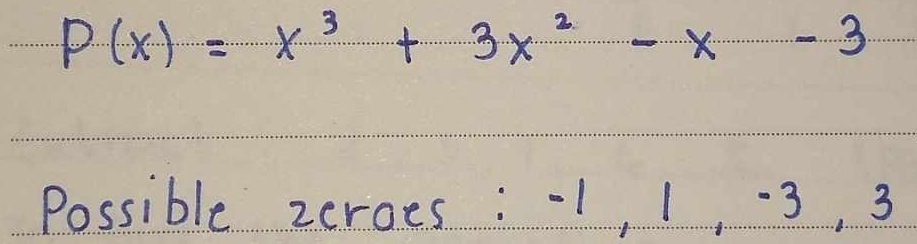 P(x) = x³ + 3x² - x - 3
Possible zeroes : -1, 1, -3, 3